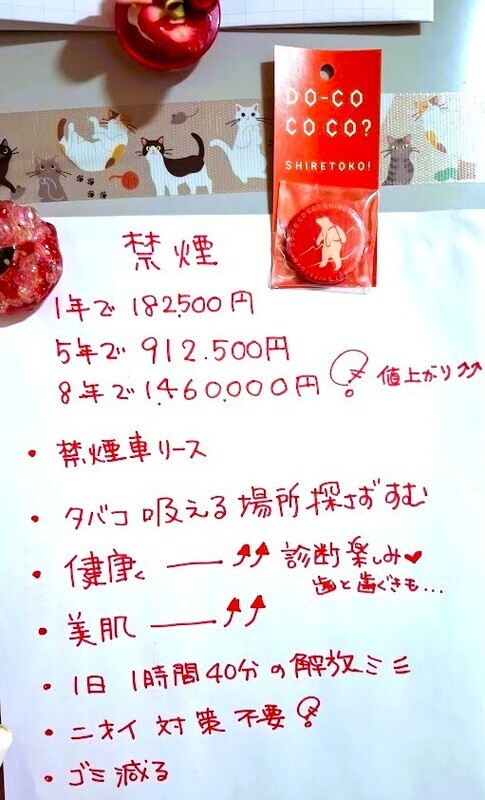 DO-CO
CO CO?
SHIRETOKO!
禁煙
1年で 182.500円
5年で 912.500円
8年で 1.460.000円 値上がり↑↑
・禁煙車リース
・タバコ 吸える 場所 探さずすむ
・健康 → ↑↑ 診断 楽しみ♥
歯と歯ぐきも...
・美肌 → ↑↑
・1日 1時間40分 の 解放 ミミ
・ニオイ 対策 不要
・ゴミ 減る